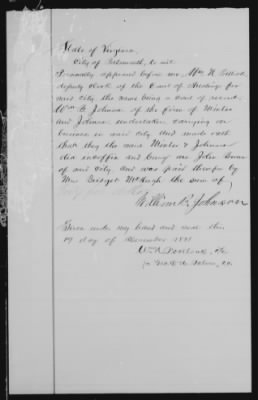 State of Virginia,
City of Portsmouth, to wit
Personally appeared before me, Wm. N.
deputy Clerk of the Court of Hustings for
said city, the same being a court of record,
Wm B. Johnson of the firm of
and Johnson undertakers carrying on
business in said city and made oath
that they the said & Johnson
did encoffin and bury one John
of said city, and was paid therefor by
Mrs Bridget McHugh the sum of
William B. Johnson
Given under my hand and seal this
19 day of December 1891